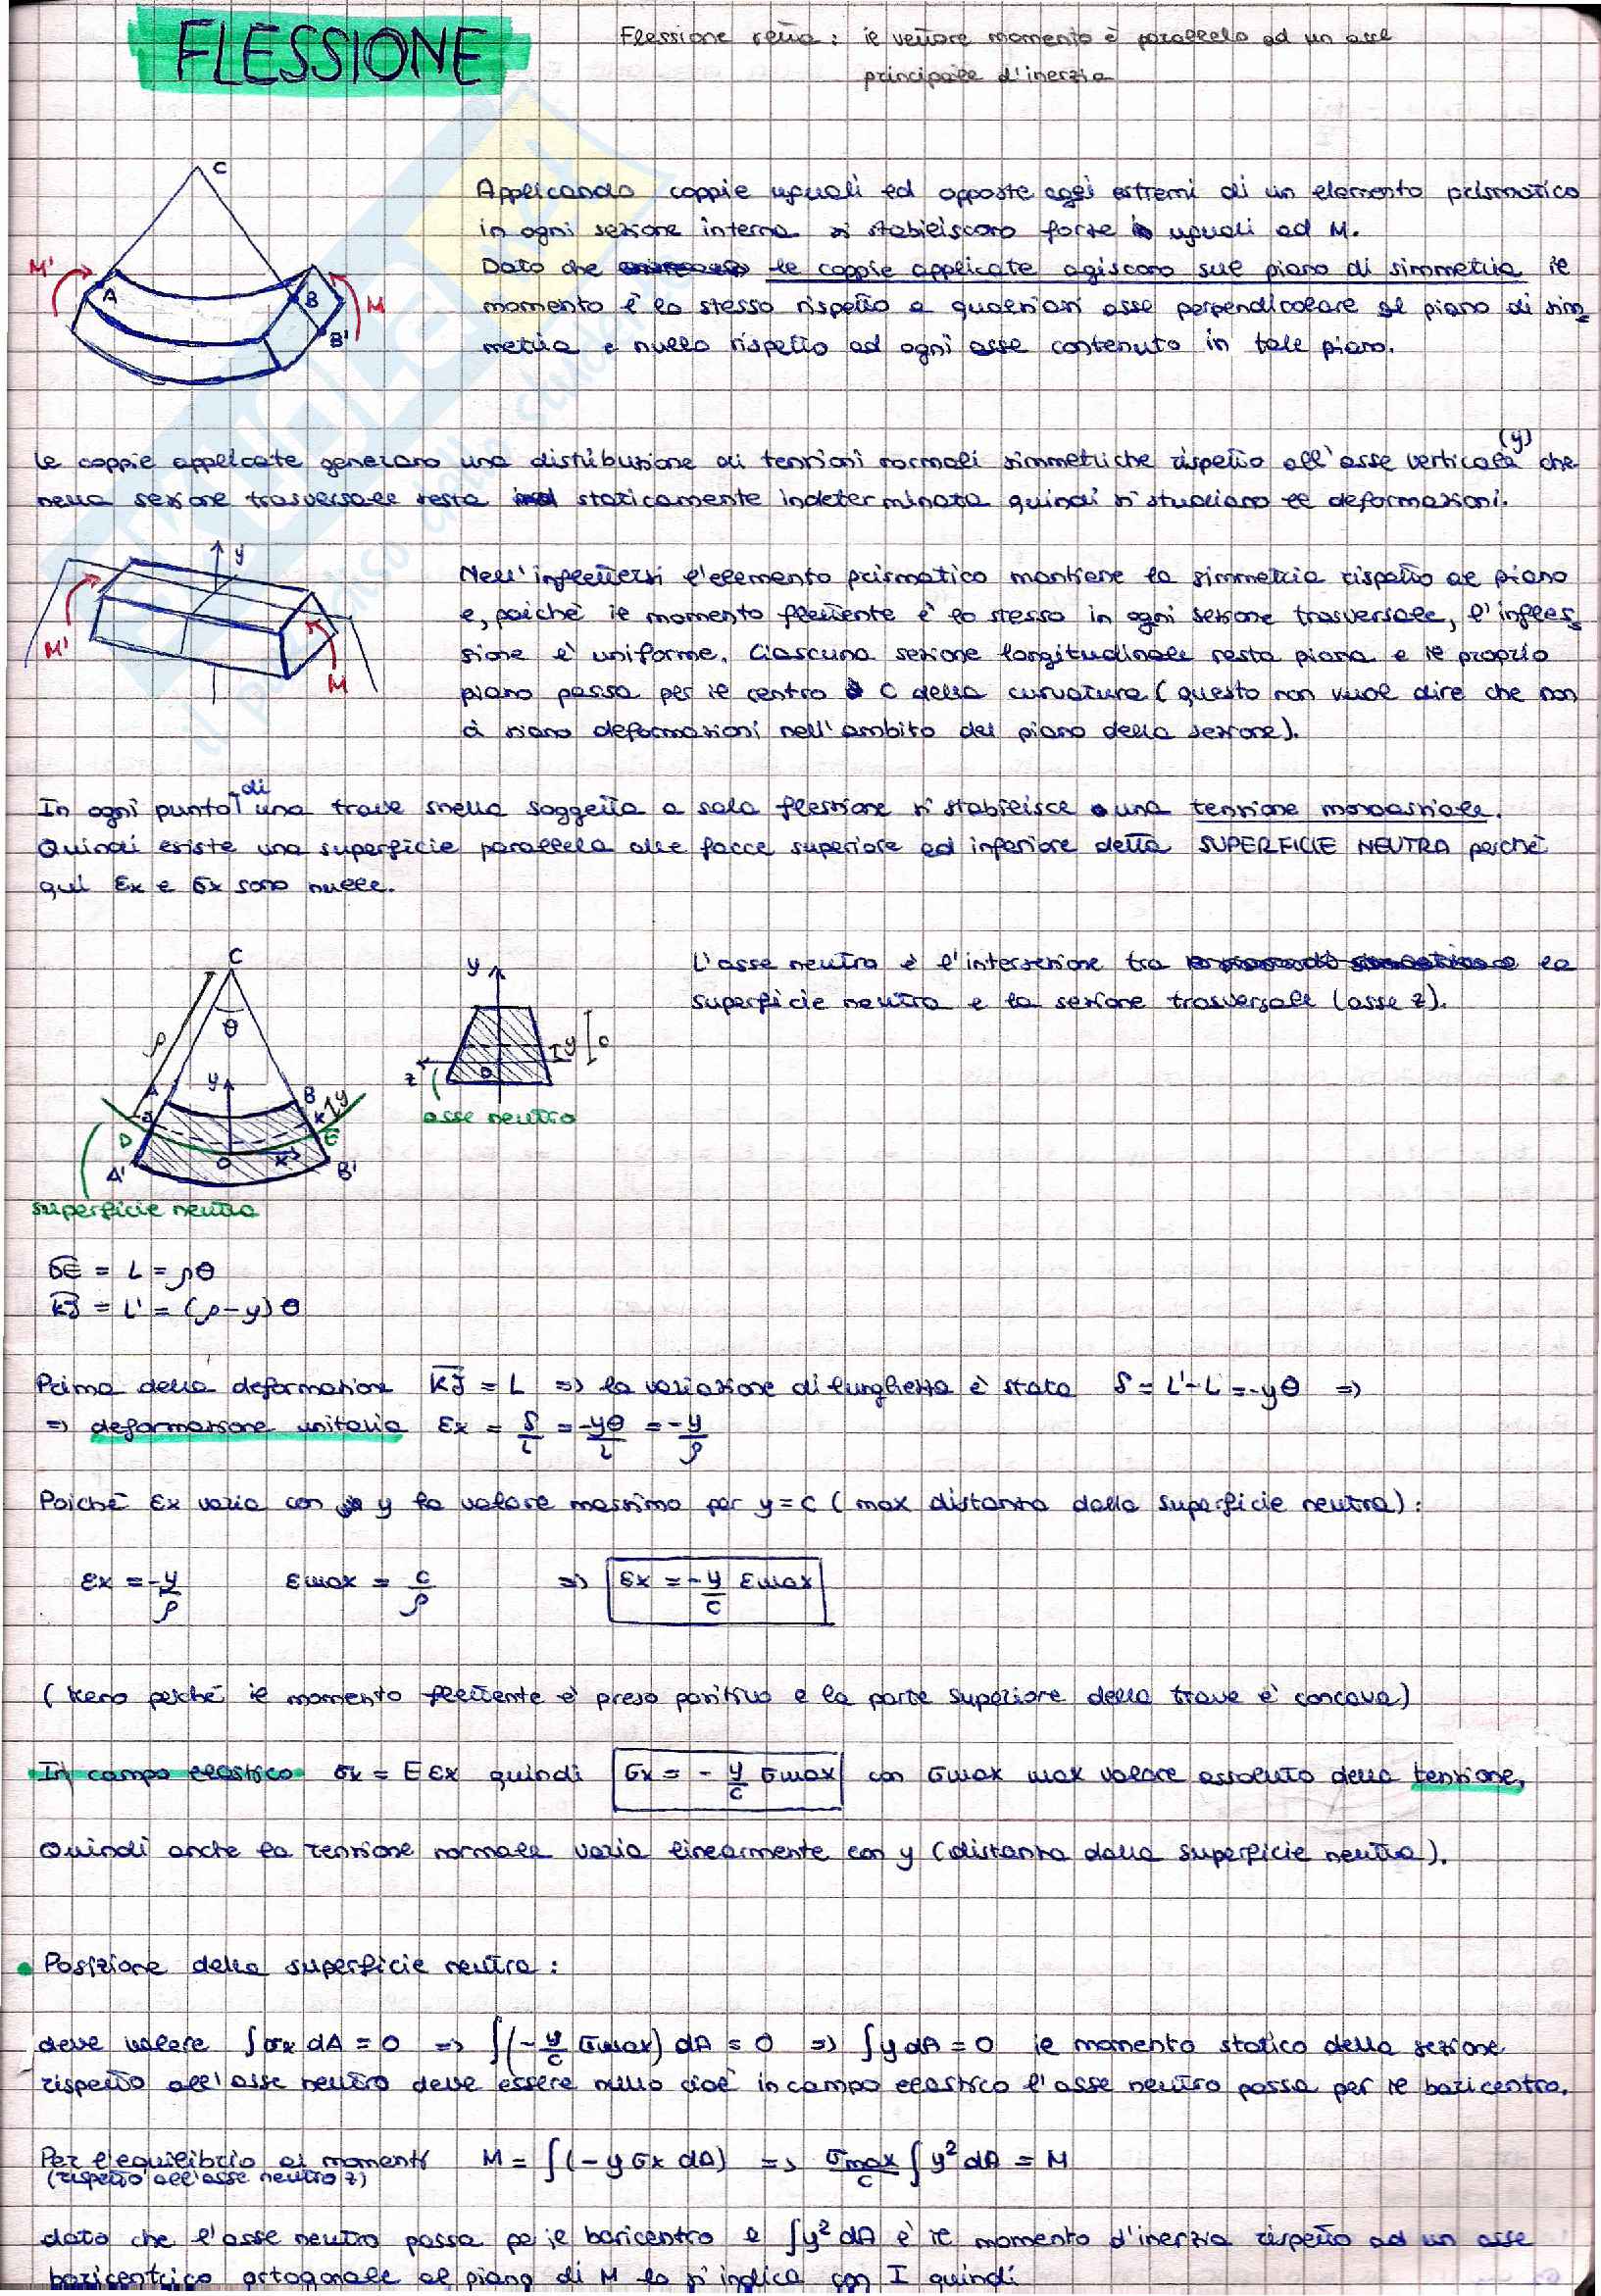 FLESSIONE
Flessione retta: il vettore momento è parallelo ad un asse
principale d'inerzia
C
M'
A
B
M
B'
Applicando coppie uguali ed opposte agli estremi di un elemento prismatico
in ogni sezione interna si stabiliscono forze uguali ad M.
Dato che le coppie applicate agiscono sul piano di simmetria il
momento è lo stesso rispetto a qualsiasi asse perpendicolare al piano di sim
metria e nullo rispetto ad ogni asse contenuto in tale piano.
(y)
Le coppie applicate generano una distribuzione di tensioni normali simmetriche rispetto all'asse verticale che
nella sezione trasversale resta staticamente indeterminata quindi si studiano le deformazioni.
y
M'
M
Nell'inflettersi l'elemento prismatico mantiene la simmetria rispetto al piano
e, poichè il momento flettente è lo stesso in ogni sezione trasversale, l'infles
sione è uniforme. Ciascuna sezione longitudinale resta piana e il proprio
piano passa per il centro C della curvatura (questo non vuol dire che non
ci siano deformazioni nell'ambito del piano della sezione).
di
In ogni punto una trave snella soggetta a sola flessione si stabilisce una tensione monoassiale.
Quindi esiste una superficie parallela alle facce superiore ed inferiore detta SUPERFICIE NEUTRA perchè
qui εx e σx sono nulle.
C
θ
ρ
y
A
B
J
K
y
D
E
O
x
A'
B'
superficie neutra
y
y
c
z
O
asse neutro
L'asse neutro è l'intersezione tra la
superficie neutra e la sezione trasversale (asse z).
DE = L = ρθ
KJ = L' = (ρ-y)θ
Prima della deformazione KJ = L => la variazione di lunghezza è stata δ = L'-L = -yθ =>
=> deformazione unitaria εx = δ/L = -yθ/L = -y/ρ
Poichè εx varia con y ha valore massimo per y=c (max distanza dalla superficie neutra):
εx = -y/ρ εmax = c/ρ => εx = -y/c εmax
(Meno perchè il momento flettente è preso positivo e la parte superiore della trave è concava)
In campo elastico σx = E εx quindi σx = - y/c σmax con σmax max valore assoluto della tensione,
Quindi anche la tensione normale varia linearmente con y (distanza dalla superficie neutra).
• Posizione della superficie neutra:
deve valere ∫σx dA = 0 => ∫(-y/c σmax) dA = 0 => ∫y dA = 0 il momento statico della sezione
rispetto all'asse neutro deve essere nullo cioè in campo elastico l'asse neutro passa per il baricentro.
Per l'equilibrio ai momenti M = ∫(-y σx dA) => σmax/c ∫y² dA = M
(rispetto all'asse neutro z)
dato che l'asse neutro passa per il baricentro e ∫y² dA è il momento d'inerzia rispetto ad un asse
baricentrico ortogonale al piano di M lo si indica con I quindi